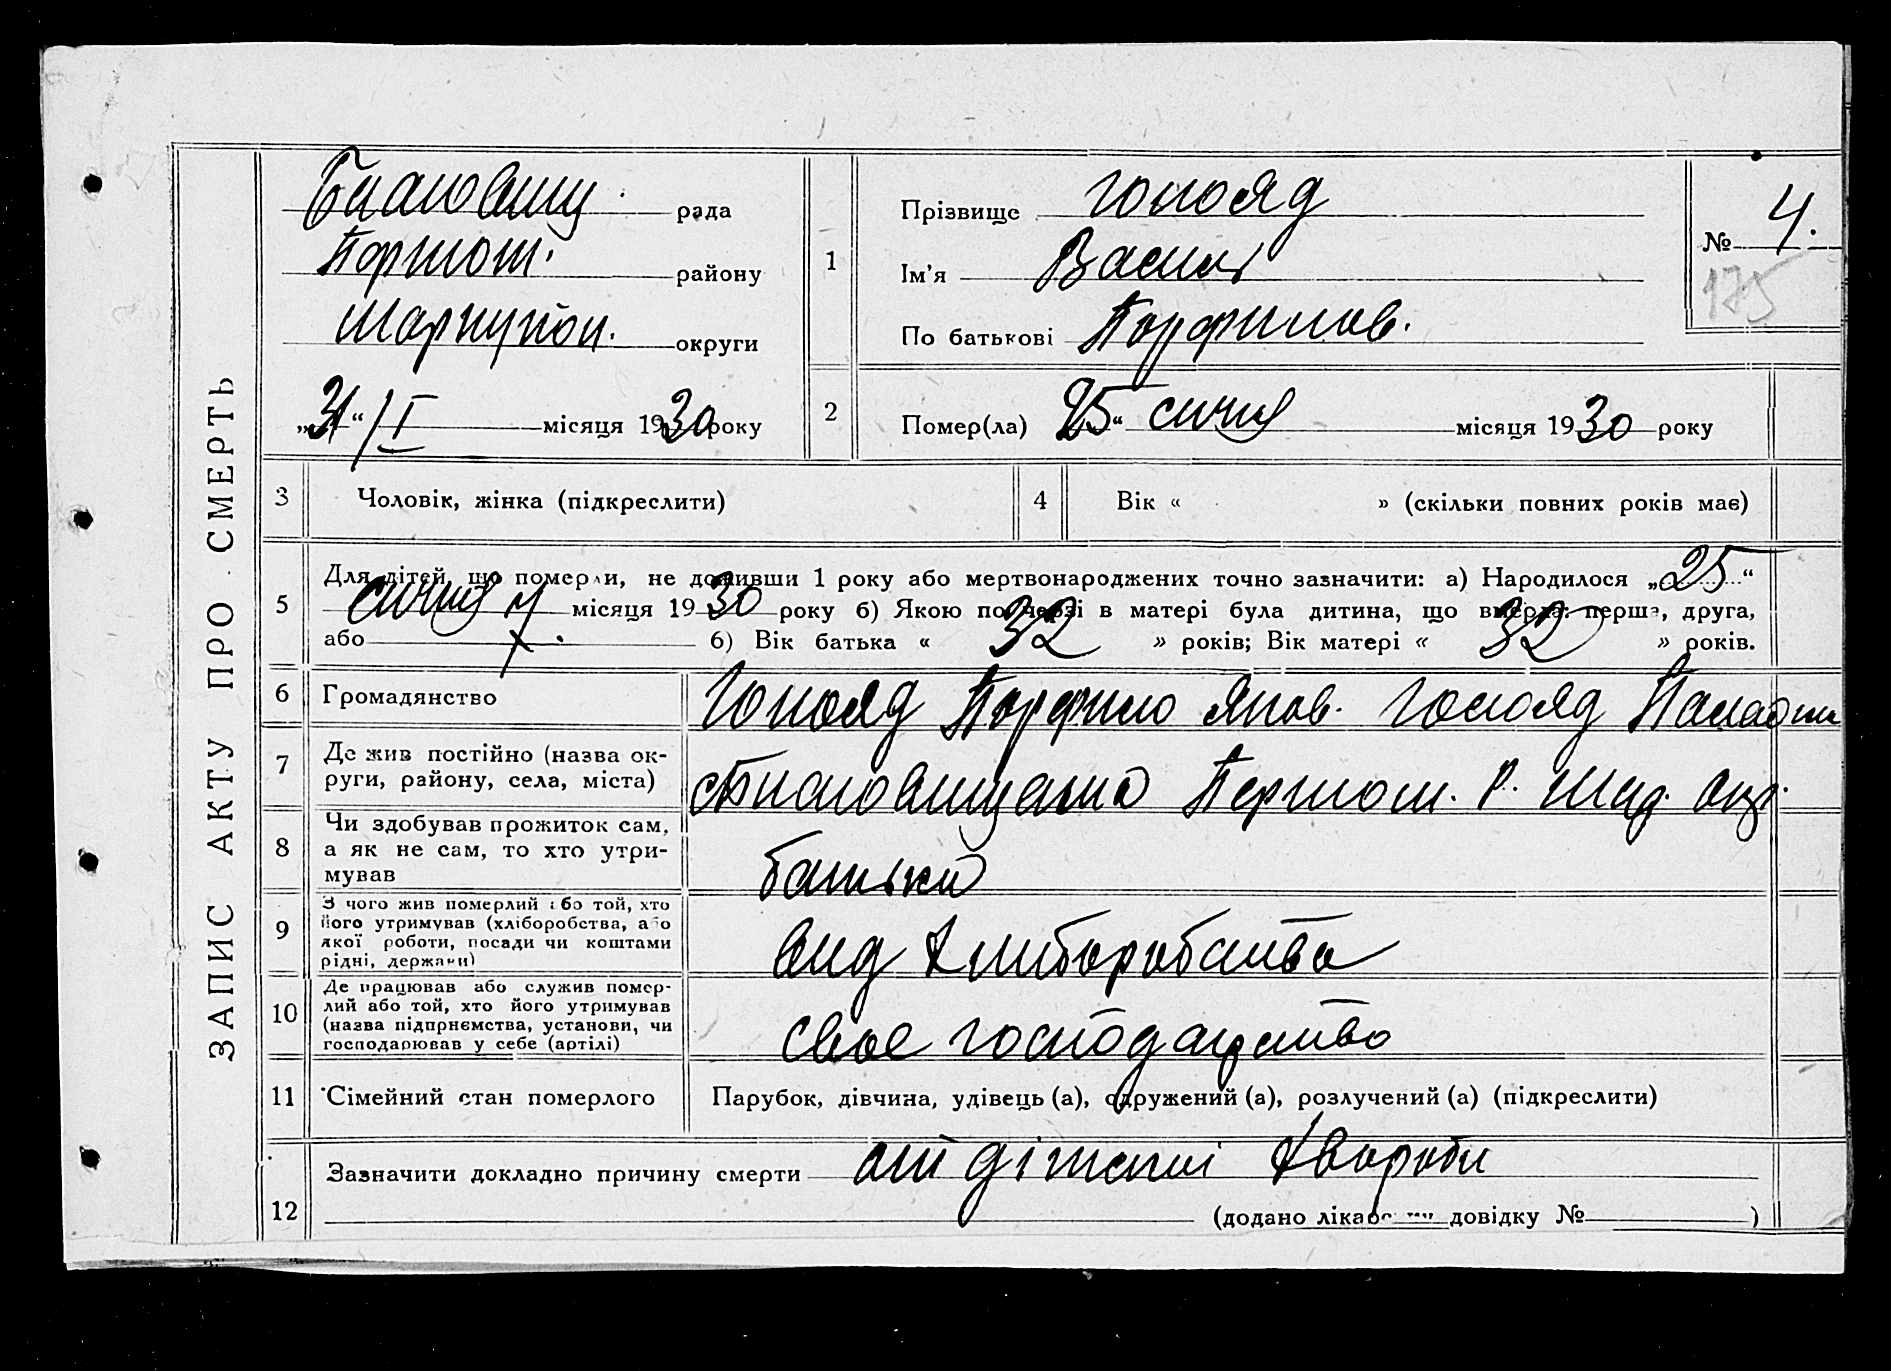 ЗАПИС АКТУ ПРО СМЕРТЬ
рада
району
округи
„31“/I місяця 1930 року
1
Прізвище
Ім'я Василь
По батькові Порфилов.
№ 4.
175
2
Помер(ла) 25“ січня місяця 1930 року
3 Чоловік, жінка (підкреслити)
4 Вік « » (скільки повних років має)
5 Для дітей, що померли, не доживши 1 року або мертвонароджених точно зазначити: а) Народилося „25“
січня місяця 1930 року б) Якою по черзі в матері була дитина, що вмерла: перша, друга,
або б) Вік батька « 32 » років; Вік матері « 32 » років.
6 Громадянство
7 Де жив постійно (назва ок-
руги, району, села, міста)
8 Чи здобував прожиток сам,
а як не сам, то хто утри-
мував
батьки
9 З чого жив померлий або той, хто
його утримував (хліборобства, або
якої роботи, посади чи коштами
рідні, держави)
від хліборобства
10 Де працював або служив помер-
лий або той, хто його утримував
(назва підприємства, установи, чи
господарював у себе (артілі)
своє господарство
11 Сімейний стан померлого
Парубок, дівчина, удівець (а), одружений (а), розлучений (а) (підкреслити)
12 Зазначити докладно причину смерти хвороби
(додано лікарську довідку № )